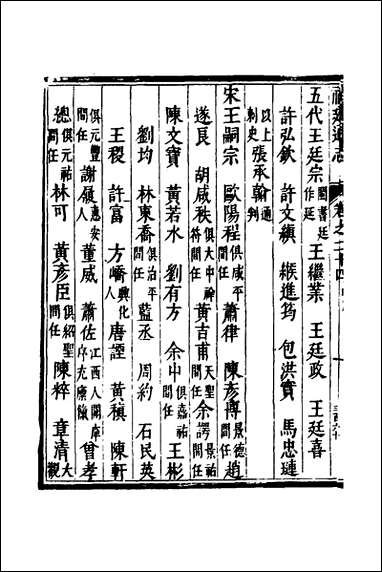 福建通志 卷之二十四
五代王廷宗閩書廷作延 王繼業 王廷政 王廷喜
許弘欽 許文縝 緱進筠 包洪實 馬忠璉
以上刺史張承翰通判
宋王嗣宗 歐陽程俱咸平間任 蕭律 陳彥博景德間任趙
遂良 胡咸秩俱大中祥符間任 黃吉甫天聖間任余諤景祐間任
陳文寶 黃若水 劉有方 余中俱嘉祐間任王彬
劉均 林東喬俱治平間任 藍丞 周約 石民英
王稷 許當 方嶠興化人唐諲 黃稹 陳軒
俱元豐間任謝履惠安人董威 蕭佐江西人閩序作尤膺儀曾孝
總俱元祐間任林可 黃彥臣俱紹聖間任陳粹 章清大觀